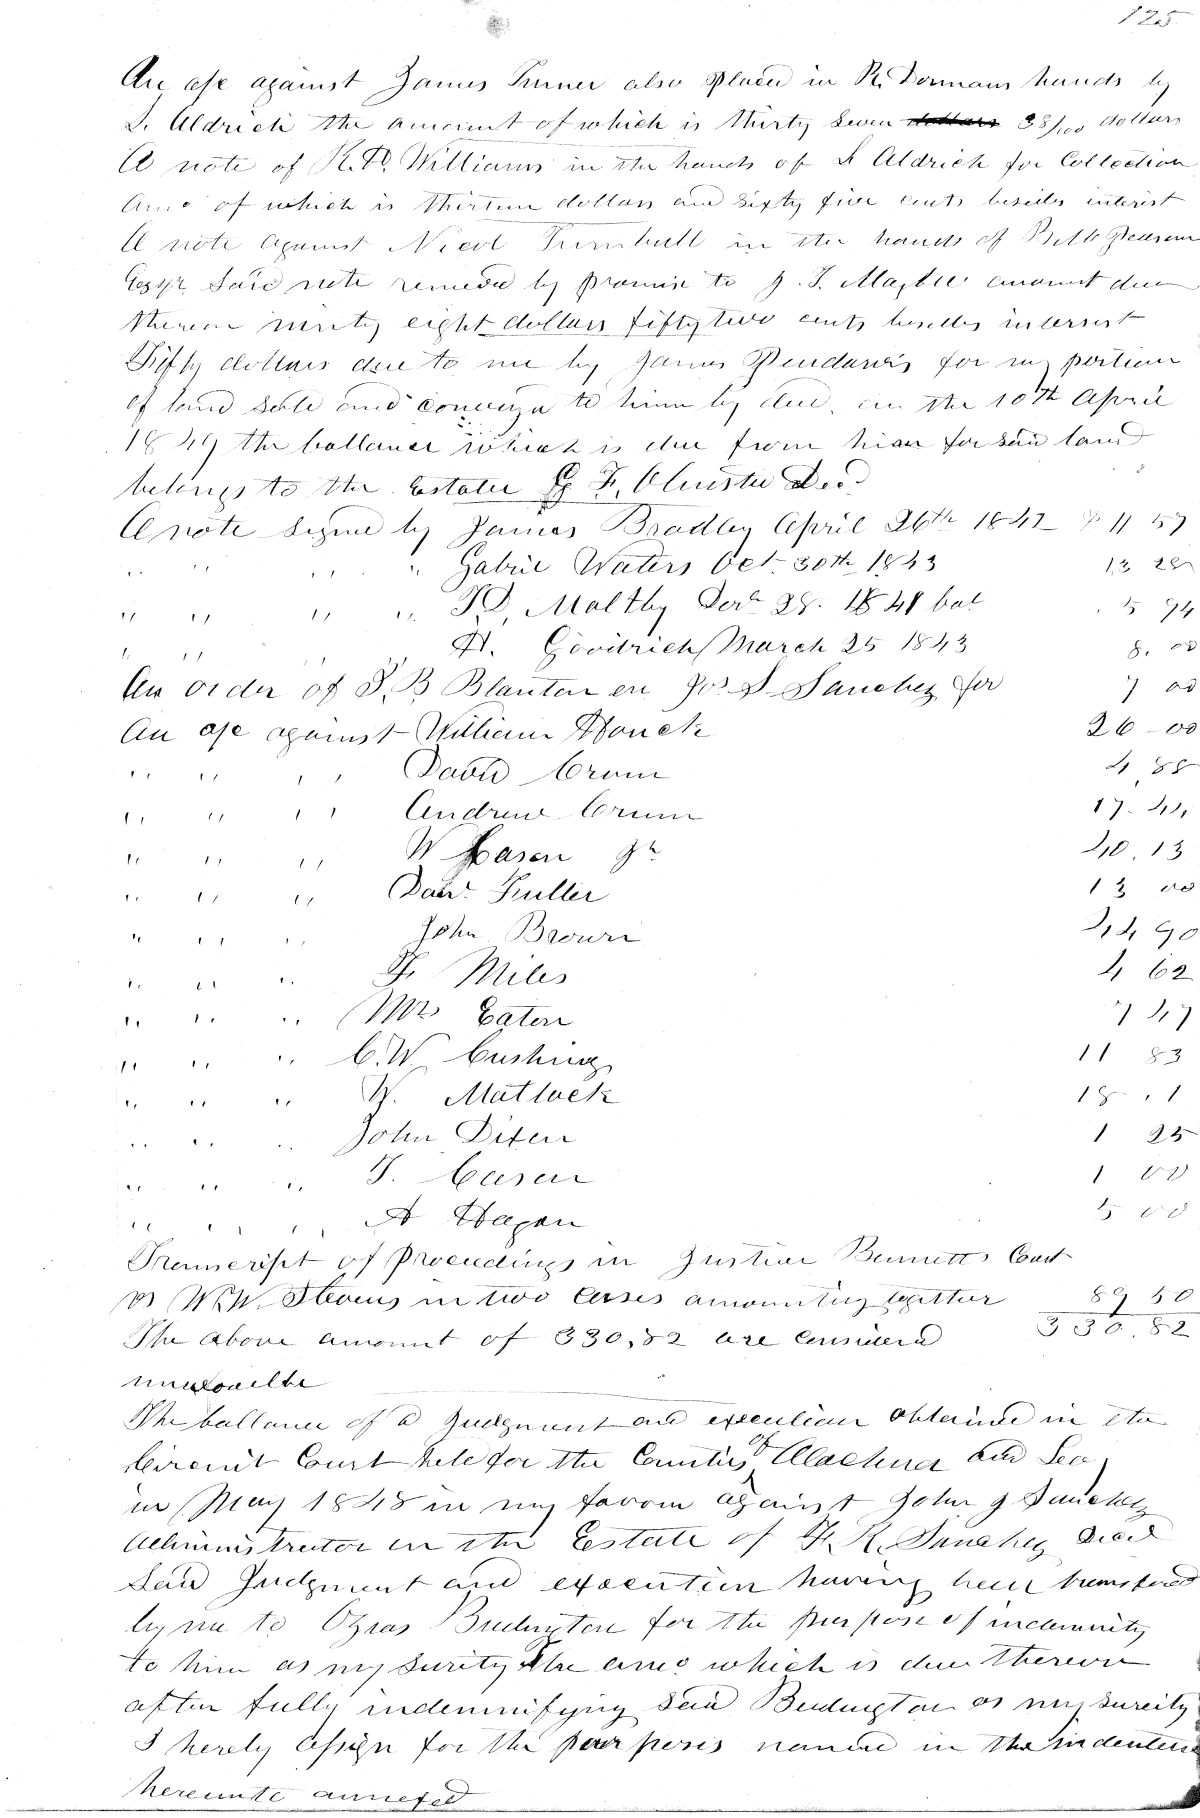 125
An a/c against James Turner also placed in R. Dormans hands by
L. Aldrich the amount of which is thirty seven dollars 38/100 dollars
A note of R. D. Williams in the hands of L Aldrich for Collection
Amo of which is thirteen dollars and sixty five cents besides interest
A note against Nicol Turnbull in the hands of Pearson
Esqr. Said note renewed by promise to J. T. Maybee amount due
thereon ninety eight dollars fifty two cents besides interest
Fifty dollars due to me by James Pendarvis for my portion
of land sold and conveyd to him by deed, on the 10th April
1849 the ballance which is due from him for said land
belongs to the Estate G F. Olmsted Decd.
A note signed by James Bradley April 26th 1842 $ 11 57
" " " " Gabriel Waters Oct. 30th 1843 13 28
" " " " Maltby 28. 1841 bal 5 94
" " " " H. Goodrich March 25 1843 8. 00
An order of S. B Blanton on Jos. S. Sanchez for 7 00
An a/c against William Houck 26 00
" " " David Crum 4 88
" " " Andrew Crum 17. 41
" " " W Cason Jr 40. 13
" " " Danl. Fuller 13 00
" " " John Brown 44 90
" " " F. Miles 4 62
" " " Mrs Eaton 7 47
" " " C. W. Cushing 11 83
" " " W. Matlock 18 . 1
" " " John Dixen 1 25
" " " T. Cason 1 00
" " " A Hagan 5 00
Transcript of proceedings in Justice Bennetts Court
vs W. W. Stevens in two cases amounting together 89 50
330.82
The above amount of 330.82 are considerd
The ballance of a Judgment and execution obtained in the
Circuit Court held for the Counties of Alachua and Leo
in May 1848 in my favour against John J Sanchez
Administrator on the Estate of F. R. Sanchez Decd
Said Judgment and execution having been transfered
by me to Ozias Budington for the purpose of indemnity
to him as my surity The amo which is due thereon
after fully indemnifying said Budington as my surity
I herely assign for the purposes named in the indenture
hereunto annexed